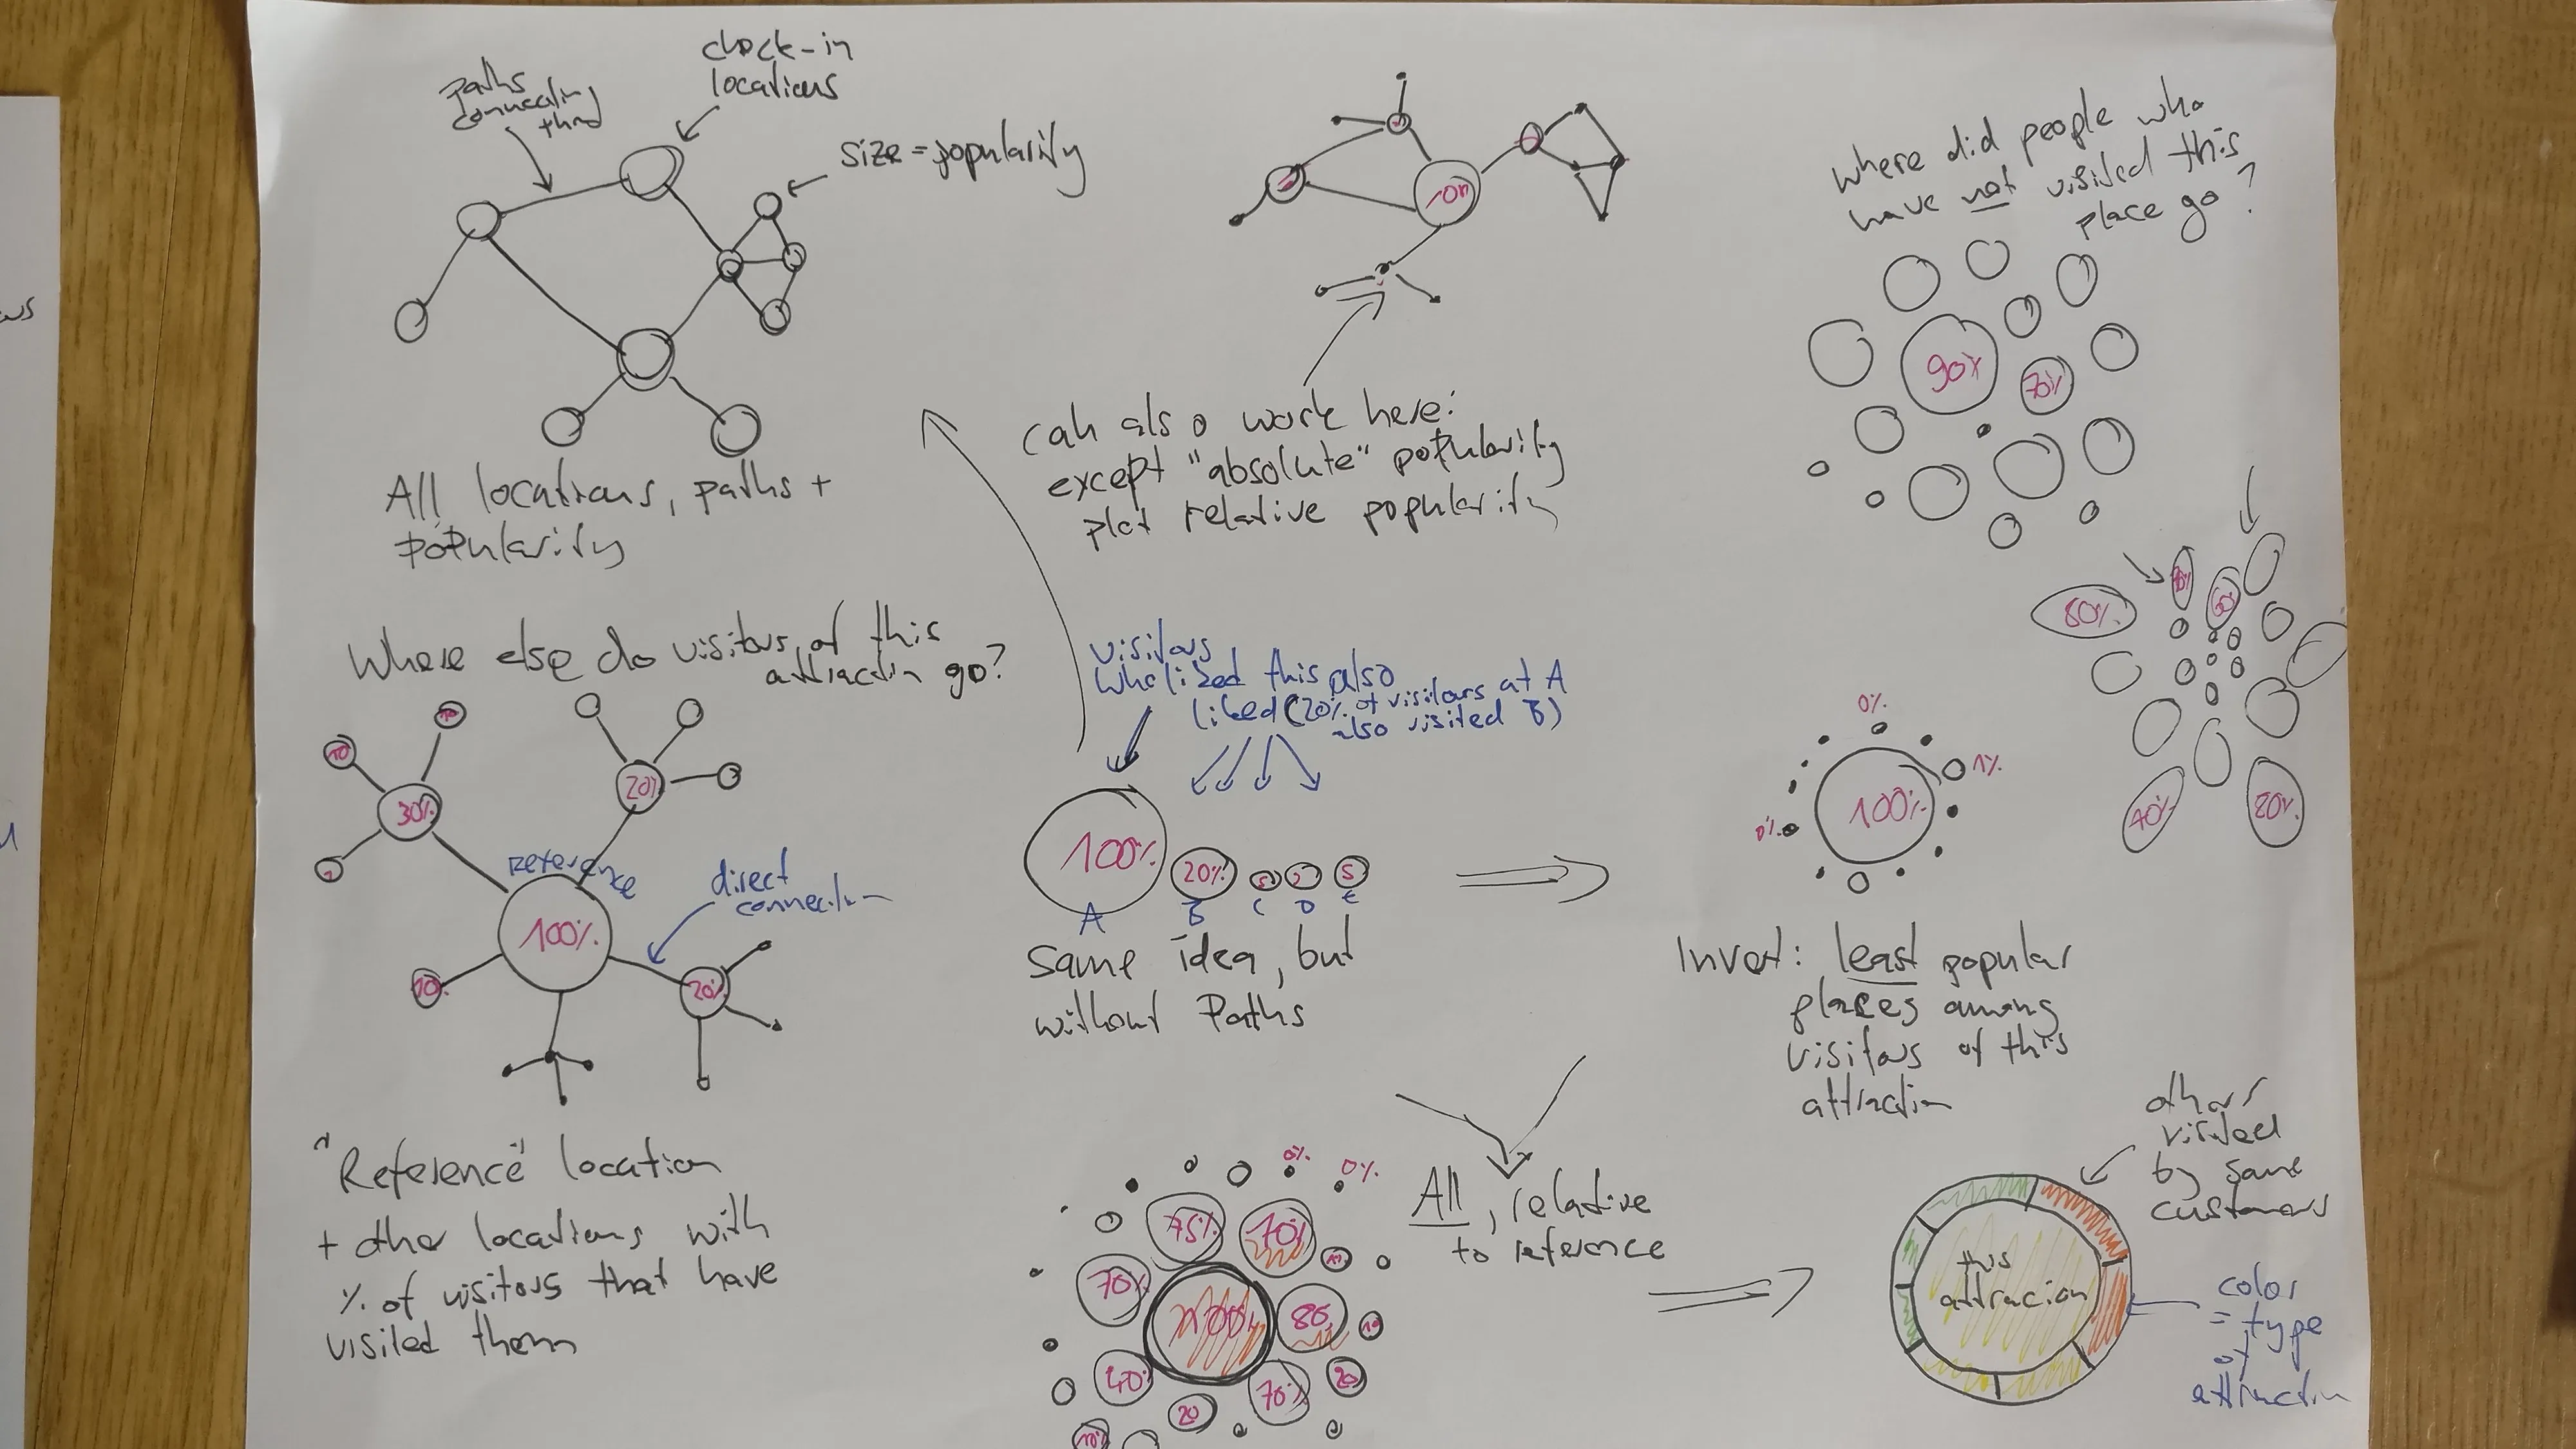 paths
connecting
clock-in
locations
size = popularity
All locations, paths +
popularity
can also work here:
except "absolute" popularity
plot relative popularity
where did people who
have not visited this
place go?
90%
70%
80%
60%
40%
80%
Where else do visitors of this
attractin go?
10
30%
20%
reference
100%
direct
connection
10%
20%
"Reference" location
+ other locations with
% of visitors that have
visited them
visitors
who liked this also
liked (20% of visitors at A
also visited B)
100%
20%
5
5
A
B
C
D
E
same idea, but
without Paths
0%
1%
0%
100%
Invert: least popular
places among
visitors of this
attractin
All, relative
to reference
0%
0%
75%
70%
70%
100%
80%
10
10
40%
70%
20
20
10%
others
visited
by same
customers
this
attracion
color
= type
of
attractin